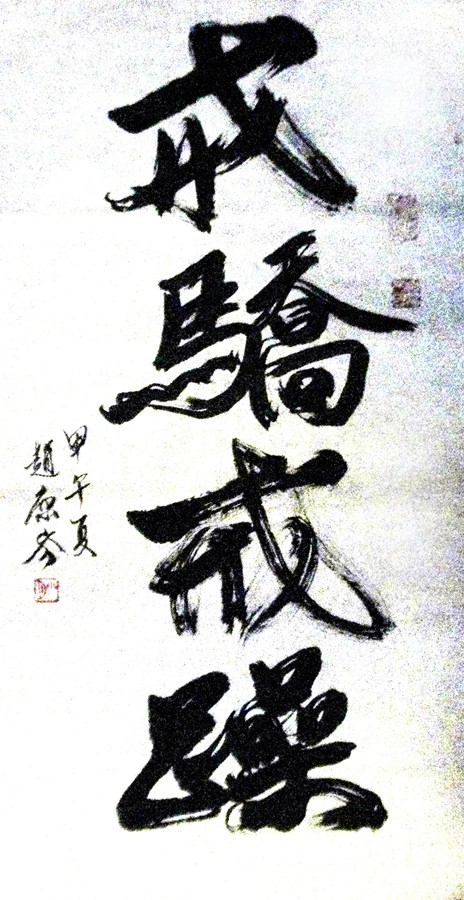 戒驕戒躁
甲午夏
趙